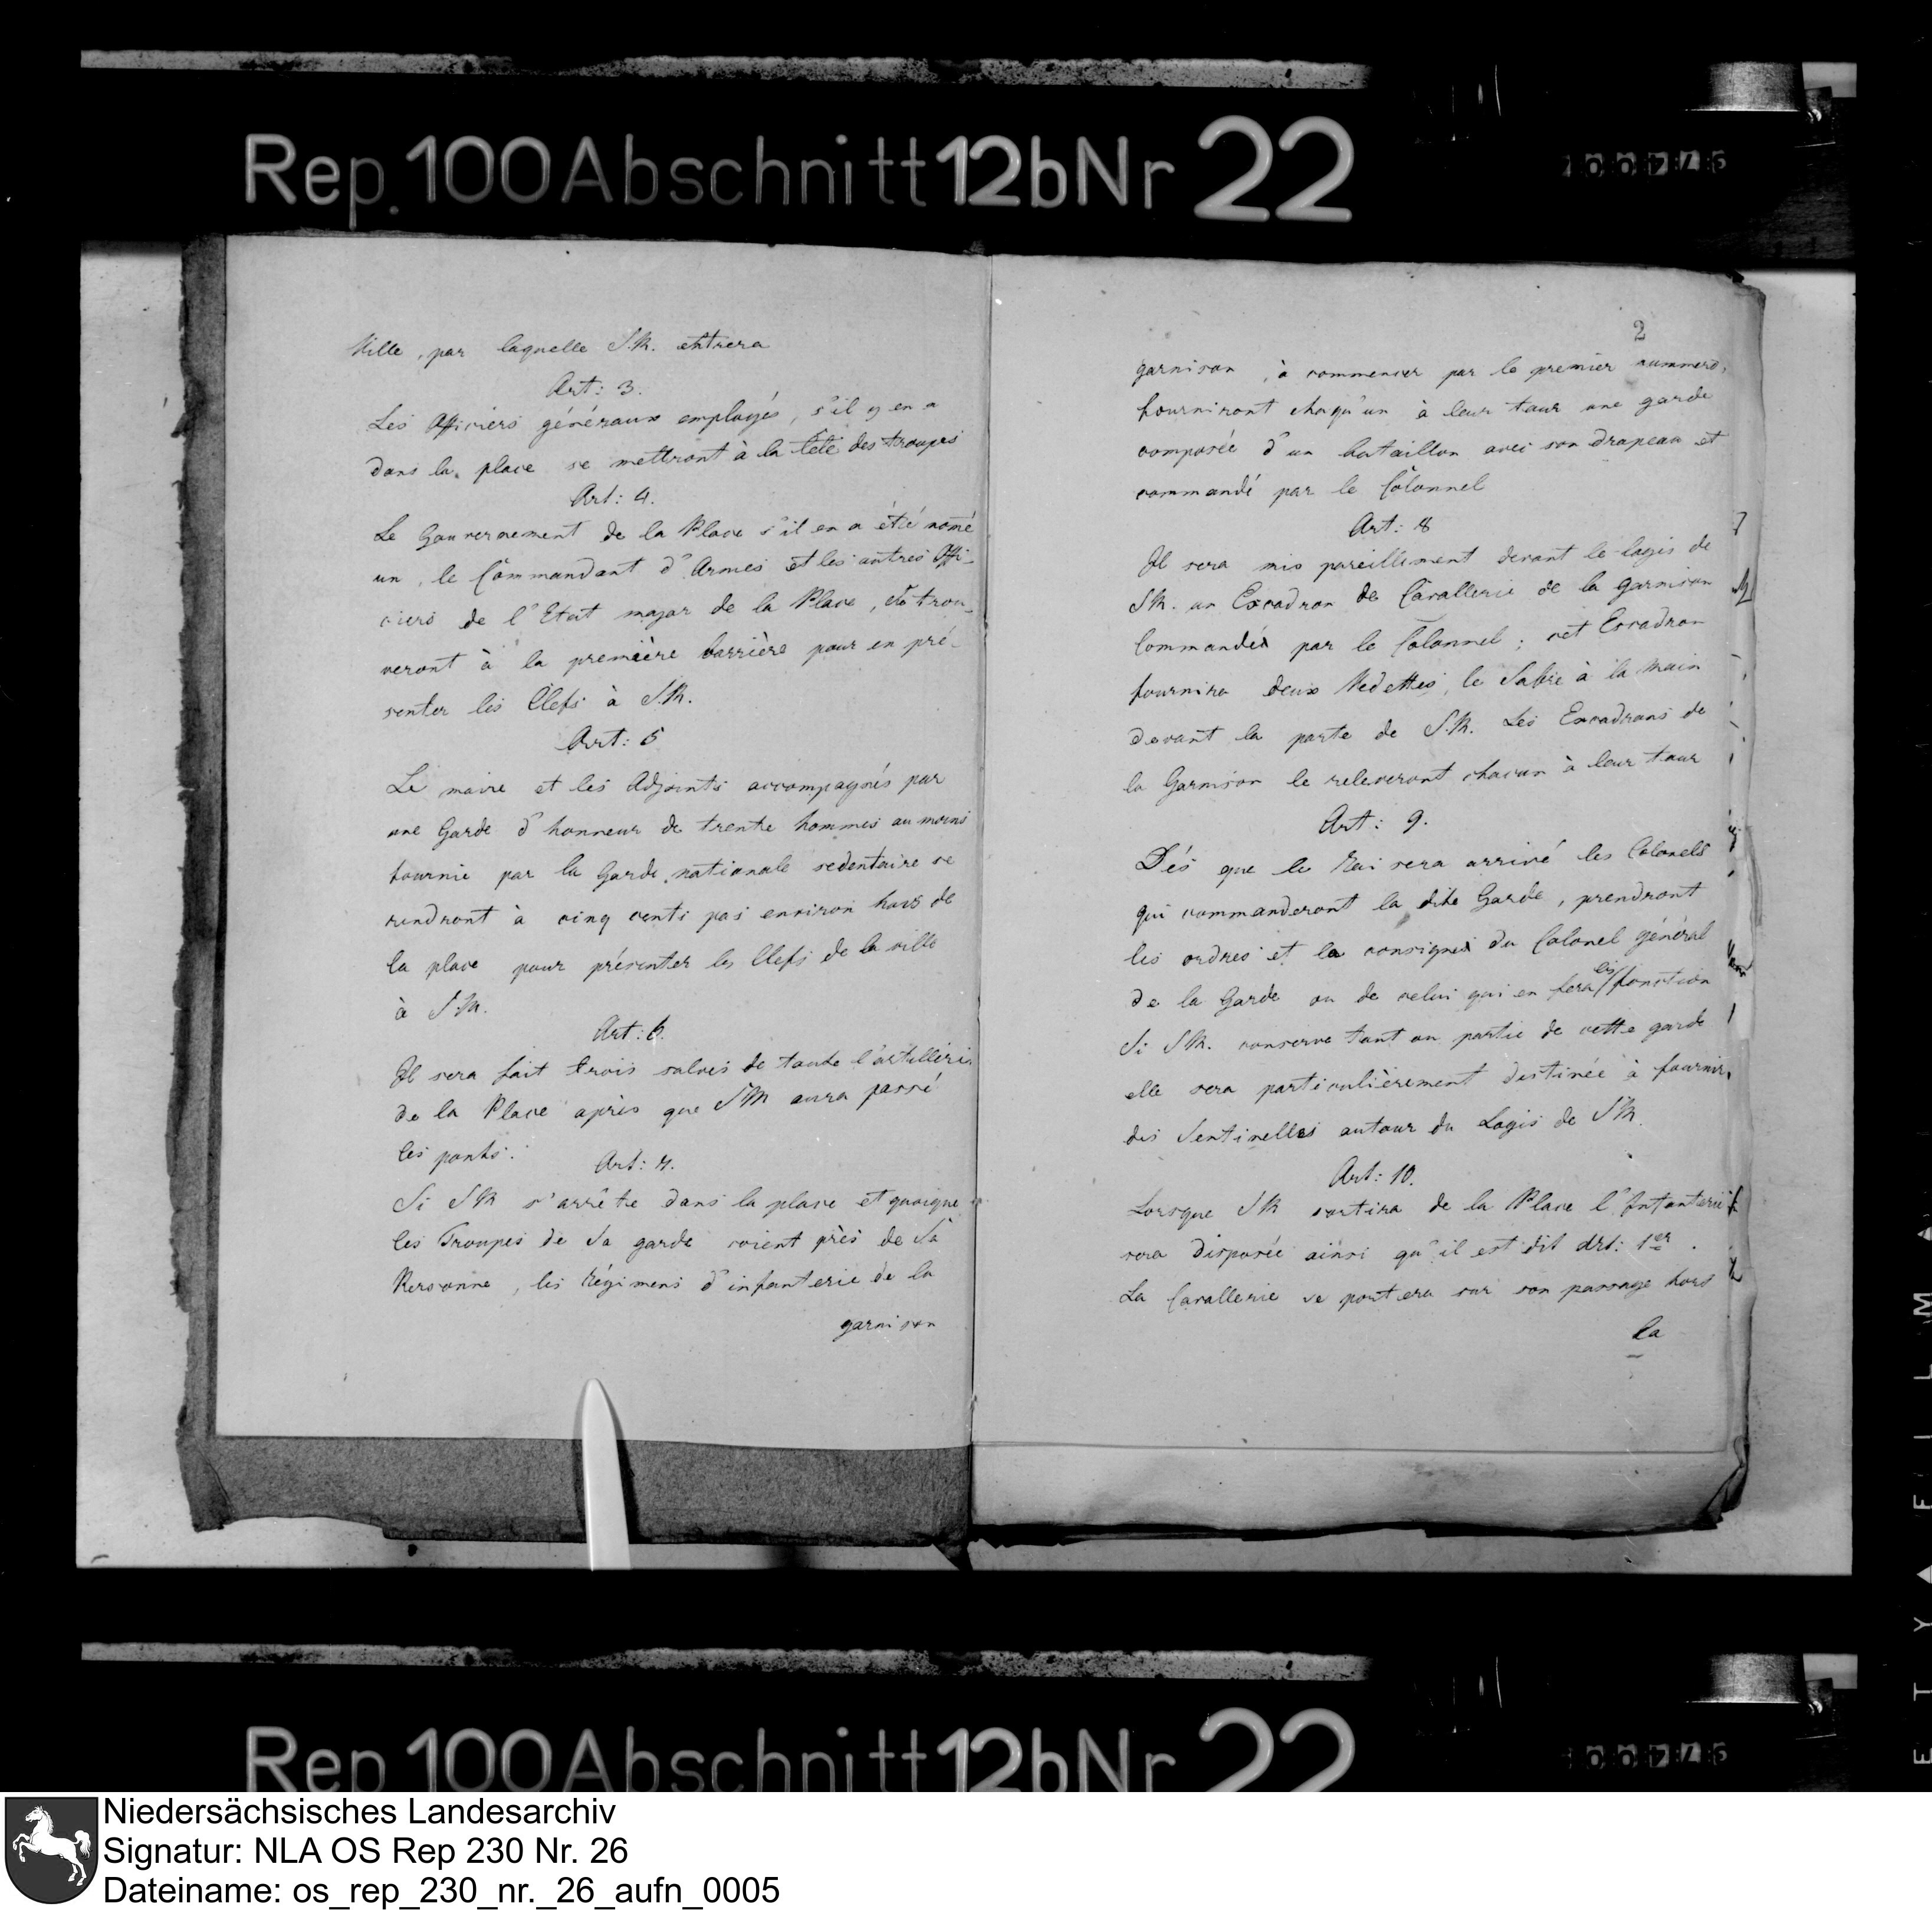 Rep. 100 Abschnitt 12b Nr 22
Ville, par laquelle S.M. entrera
Art: 3.
Les Officiers généraux employés, s'il y en a
dans la place se mettront à la tête des troupes
Art: 4.
Le Gouvernement de la Place s'il en a été nomé
un, le Commandant d'Armes et les autres Offi-
ciers de l'Etat major de la Place, se trou-
veront à la premièire barrière pour en pré-
senter les Clefs à S.M.
Art: 5
Le maire et les Adjoints accompagnés par
une Garde d'honneur de trente hommes au moins
fournie par la Garde nationale sedentaire se
rendront à cinq cents pas environ hors de
la place pour présenter les Clefs de la ville
à S.M.
Art: 6.
Il sera fait trois salves de toute l'artillerie
de la Place après que SM aura passé
les ponts.
Art: 7.
Si SM s'arrête dans la place et quoique
les Troupes de Sa garde soient près de Sa
Personne, les Régimens d'infanterie de la
garnison
2
garnison, à commencer par le premier nummero,
fourniront chaqu'un à leur tour une garde
composée d'un bataillon avec son drapeau et
commandé par le Colonnel
Art: 8
Il sera mis pareillement devant le logis de
SM. un Escadron de Cavallerie de la garnison
Commandée par le Colonnel; cet Escadron
fournira deux Vedettes, le Sabre à la Main
devant la porte de S.M. Les Escadrons de
la Garnison le releveront chacun à leur tour
Art: 9.
Dés que le Roi sera arrivé les Colonels
qui commanderont la dite Garde, prendront
les ordres et la consigne du Colonel général
de la Garde ou de celui qui en fera les fonction
Si SM. conserve tout ou partie de cette garde
elle sera particulièrement destinée à fournir
des Sentinelles autour du Logis de SM.
Art: 10.
Lorsque SM sortira de la Place l'Infanterie
sera disposée ainsi qu'il est dit Art: 1er.
La Cavallerie se portera sur son passage hors
la
Rep. 100 Abschnitt 12b Nr 22
Niedersächsisches Landesarchiv
Signatur: NLA OS Rep 230 Nr. 26
Dateiname: os_rep_230_nr._26_aufn_0005